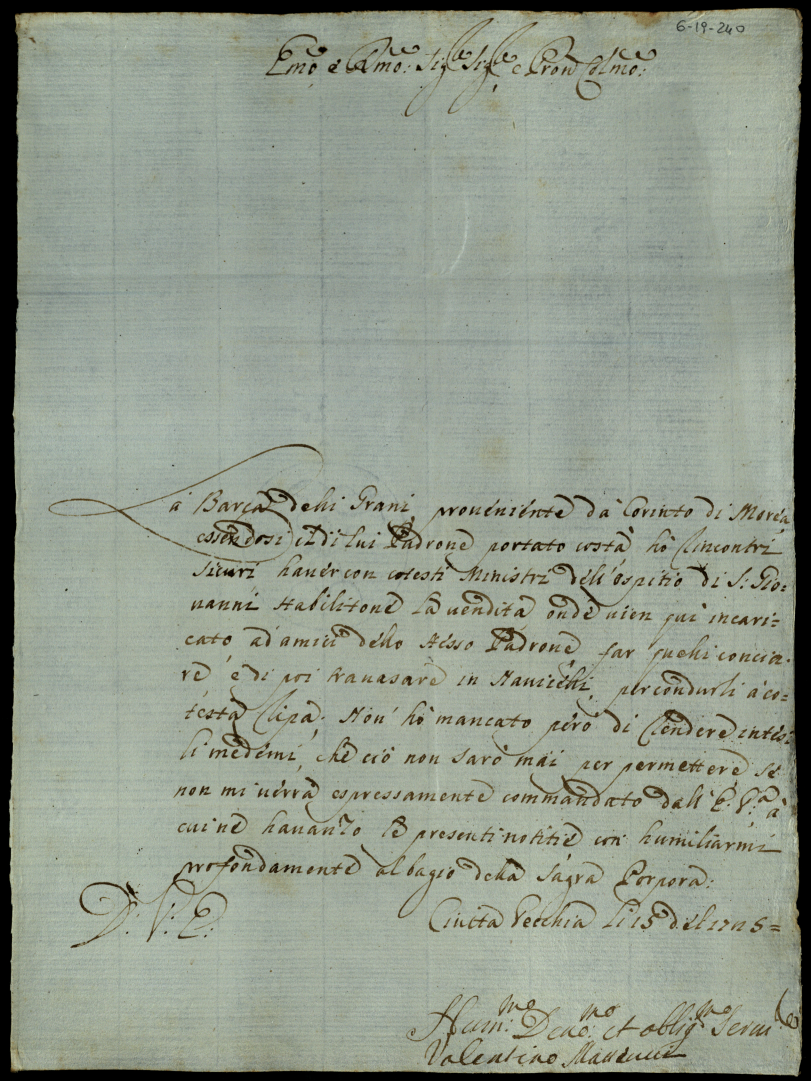 6-19-240
Emo. e Rmo: Sigre Sigre e Pron Colmo:
La Barca delli Grani proveniente dà Corinto di Moréa
essendosi il di lui Padrone portato costà hò Rincontri
sicuri haver con cotesti Ministri dell'ospitio di S: Gio:
vanni stabilitone la vendita onde vien qui incari:
cato ad amici dello stesso Padrone far quelli concia:
re è di poi travasare in Navicelli, per condurli à co:
testa Ripa. Non hò mancato però di Rendere intesi
li medemi, che ciò non sarò mai per permettere se
non mi verrà espressamente commandato dall' E. V.ra à
cui ne havanzo le presenti notitie con humiliarmi
profondamente al bagio della Sagra Porpora:
D: V: E:
Civitta Vecchia li 15
Hum:mo Devo:mo et obblig:mo Serv
Valentino